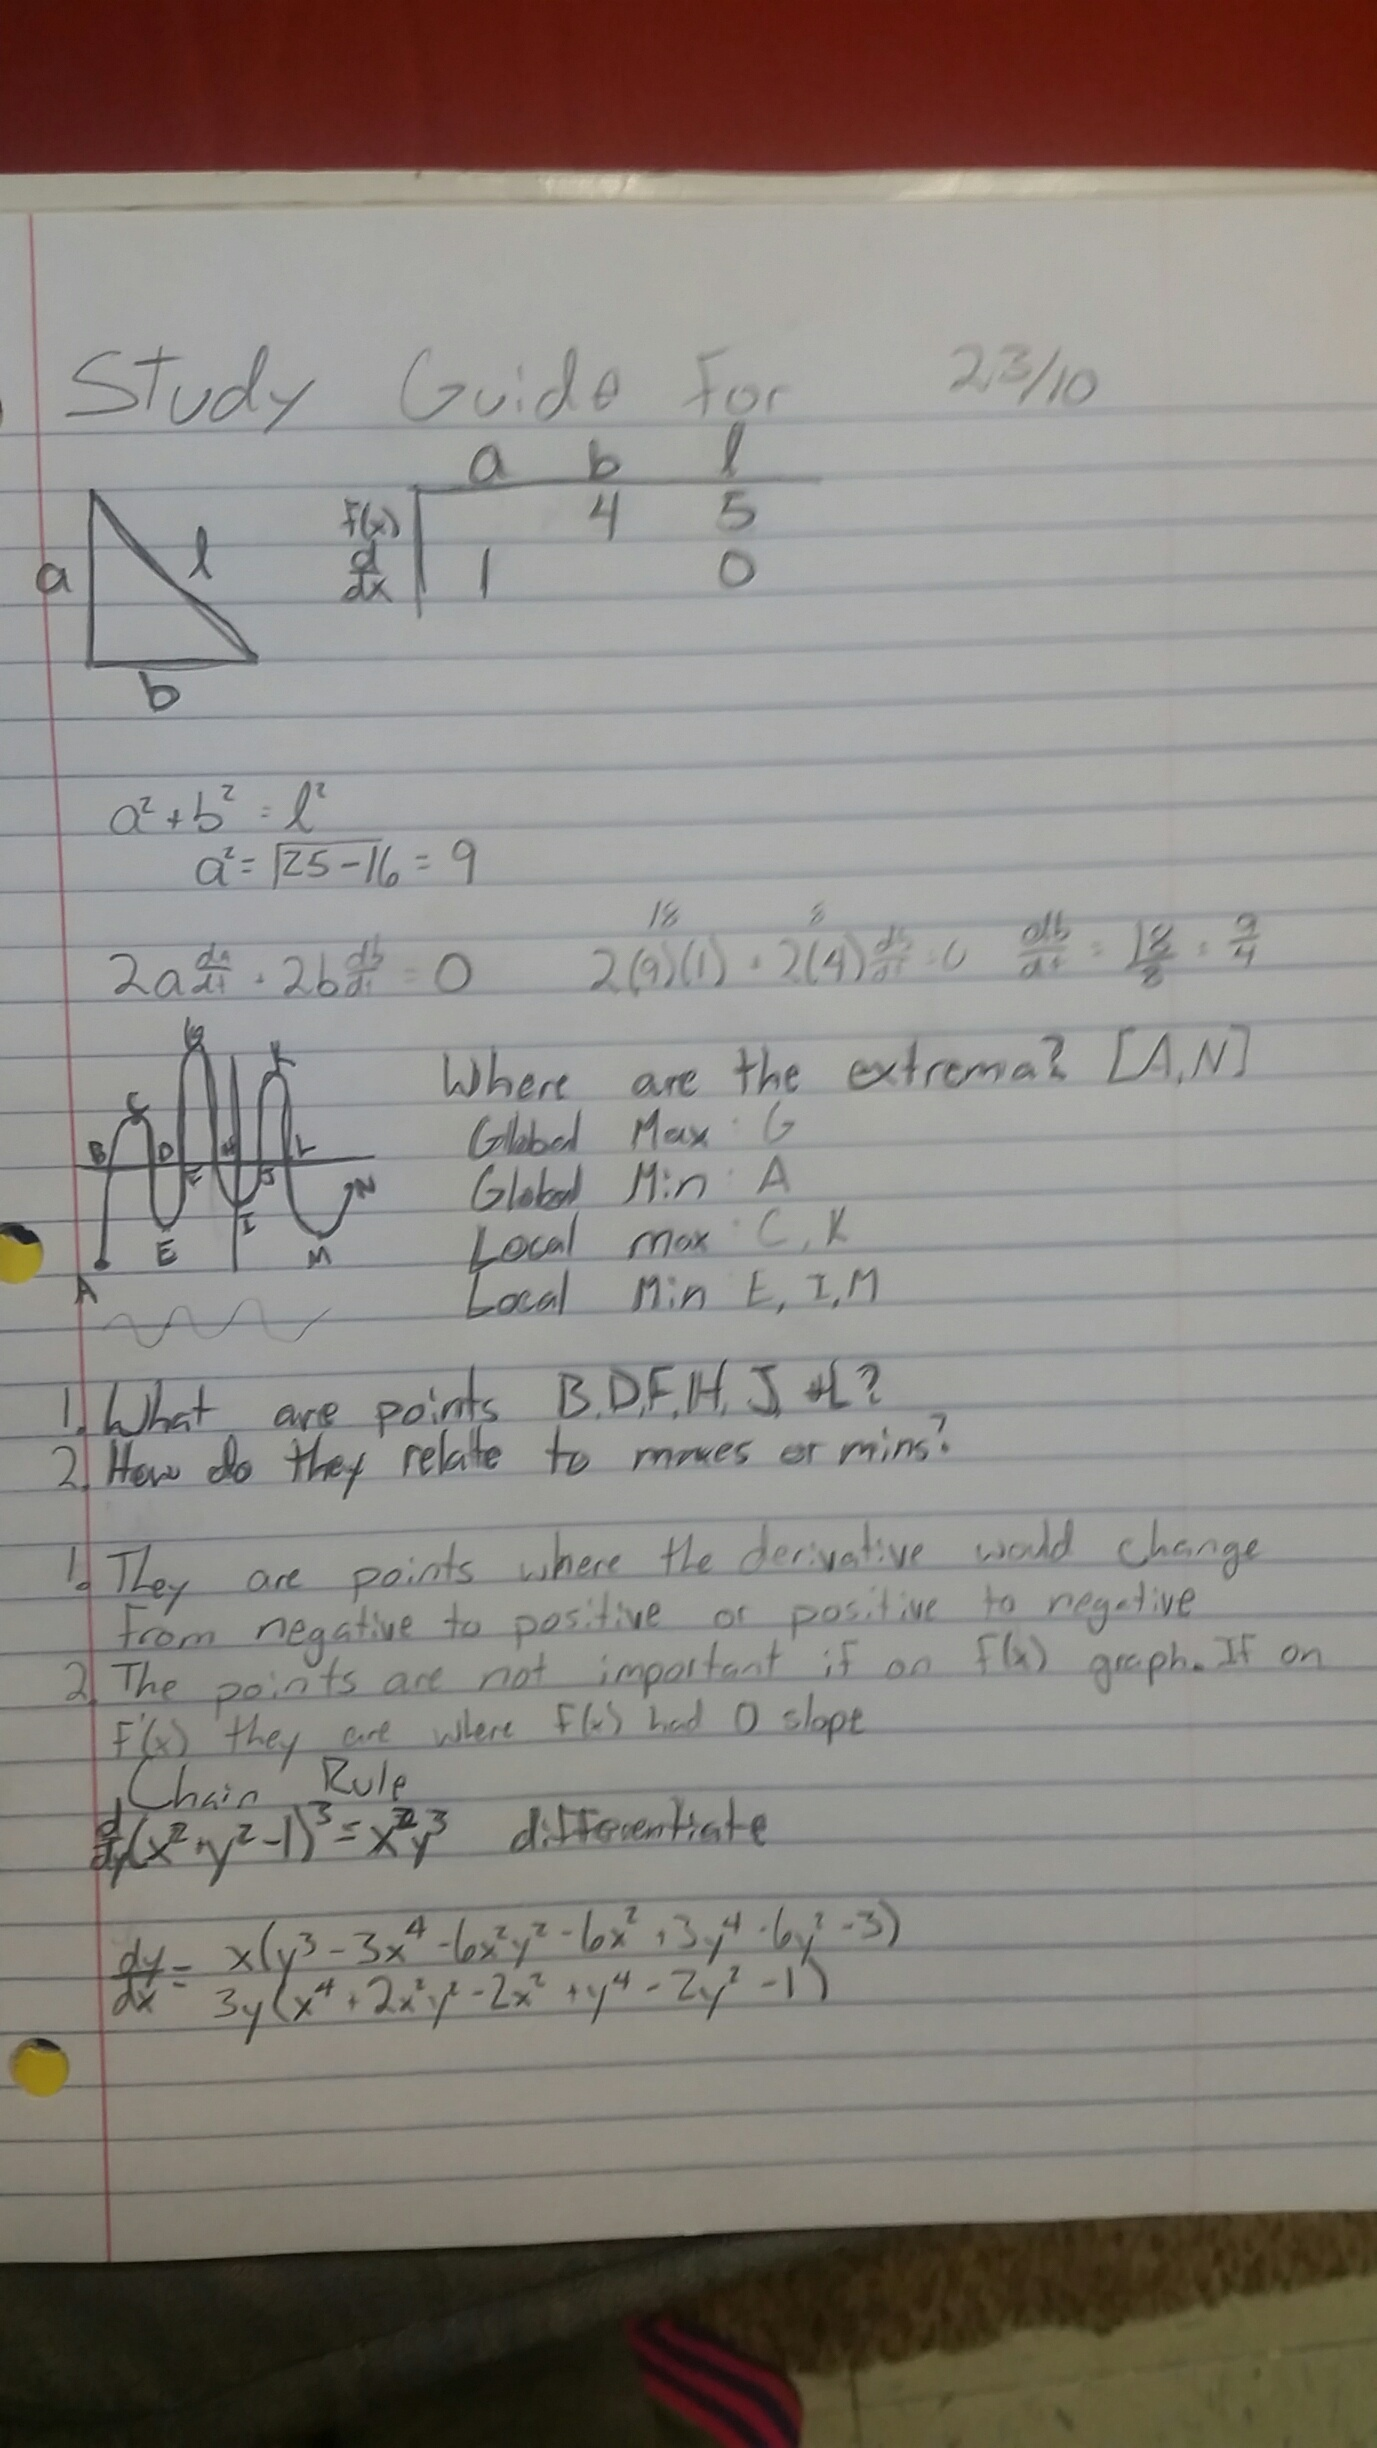 Study Guide For 23/10
a b l
f(x) 4 5
d/dx 1 0
a l
b
a² + b² = l²
a² = √25-16 = 9
18 8
2a da/dt + 2b db/dt = 0 2(9)(1) + 2(4) db/dt = 0 db/dt = 18/8 = 9/4
G
C K
B D F H J L N
I
E M
A
Where are the extrema? [A,N]
Global Max : G
Global Min : A
Local max : C, K
Local Min E, I, M
1. What are points B, D, F, H, J, + L?
2. How do they relate to maxes or mins?
1. They are points where the derivative would change
from negative to positive or positive to negative
2. The points are not important if on f(x) graph. If on
F'(x) they are where f(x) had 0 slope
Chain Rule
d/dy (x² + y² - 1)³ = x²y³ differentiate
dy/dx = x(y³ - 3x⁴ - 6x²y² - 6x² + 3y⁴ - 6y² - 3)
3y(x⁴ + 2x²y² - 2x² + y⁴ - 2y² - 1)